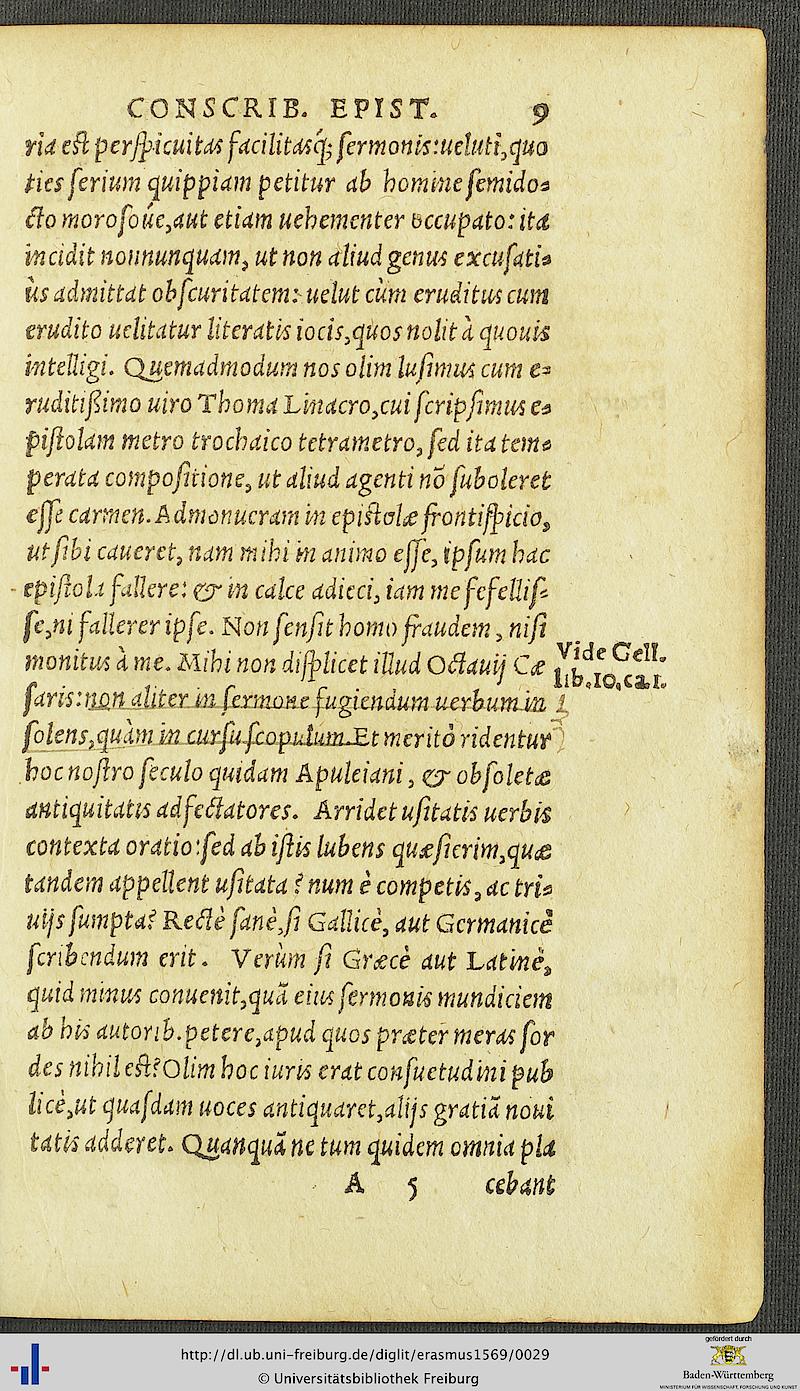 CONSCRIB. EPIST. 9
ria est perspicuitas facilitasq́; sermonis: ueluti, quo
ties serium quippiam petitur ab homine semido=
cto moroso úe, aut etiam uehementer occupato: ita
incidit nonnunquam, ut non aliud genus excusati=
ùs admittat obscuritatem: uelut cùm eruditus cum
erudito uelitatur literatis iocis, quos nolit à quouis
intelligi. Quemadmodum nos olim lusimus cum e=
ruditißimo uiro Thoma Linacro, cui scripsimus e=
pistolam metro trochaico tetrametro, sed ita tem=
perata compositione, ut aliud agenti nō suboleret
esse carmen. Admonueram in epistolæ frontispicio,
ut sibi caueret, nam mihi in animo esse, ipsum hac
epistola fallere: & in calce adieci, iam me fefellis=
se, ni fallerer ipse. Non sensit homo fraudem, nisi
monitus à me. Mihi non displicet illud Octauij Cæ
saris: non aliter in sermone fugiendum uerbum in
solens, quàm in cursu scopulum. Et meritò ridentur
hoc nostro seculo quidam Apuleiani, & obsoletæ
antiquitatis adfectatores. Arridet usitatis uerbis
contexta oratio: sed ab istis lubens quæsierim, quæ
tandem appellent usitata? num è competis, ac tri=
uijs sumpta? Rectè sanè, si Gallicè, aut Germanicè
scribendum erit. Verùm si Græcè aut Latinè,
quid minus conuenit, quā eius sermonis mundiciem
ab his autorib. petere, apud quos præter meras sor
des nihil est? Olim hoc iuris erat consuetudini pub
licè, ut quasdam uoces antiquaret, alijs gratiā noui
tatis adderet. Quanquā ne tum quidem omnia pla
A 5 cebant
Vide Gell.
lib. 10. ca. 1.
http://dl.ub.uni-freiburg.de/diglit/erasmus1569/0029
© Universitätsbibliothek Freiburg
gefördert durch
Baden-Württemberg
MINISTERIUM FÜR WISSENSCHAFT, FORSCHUNG UND KUNST